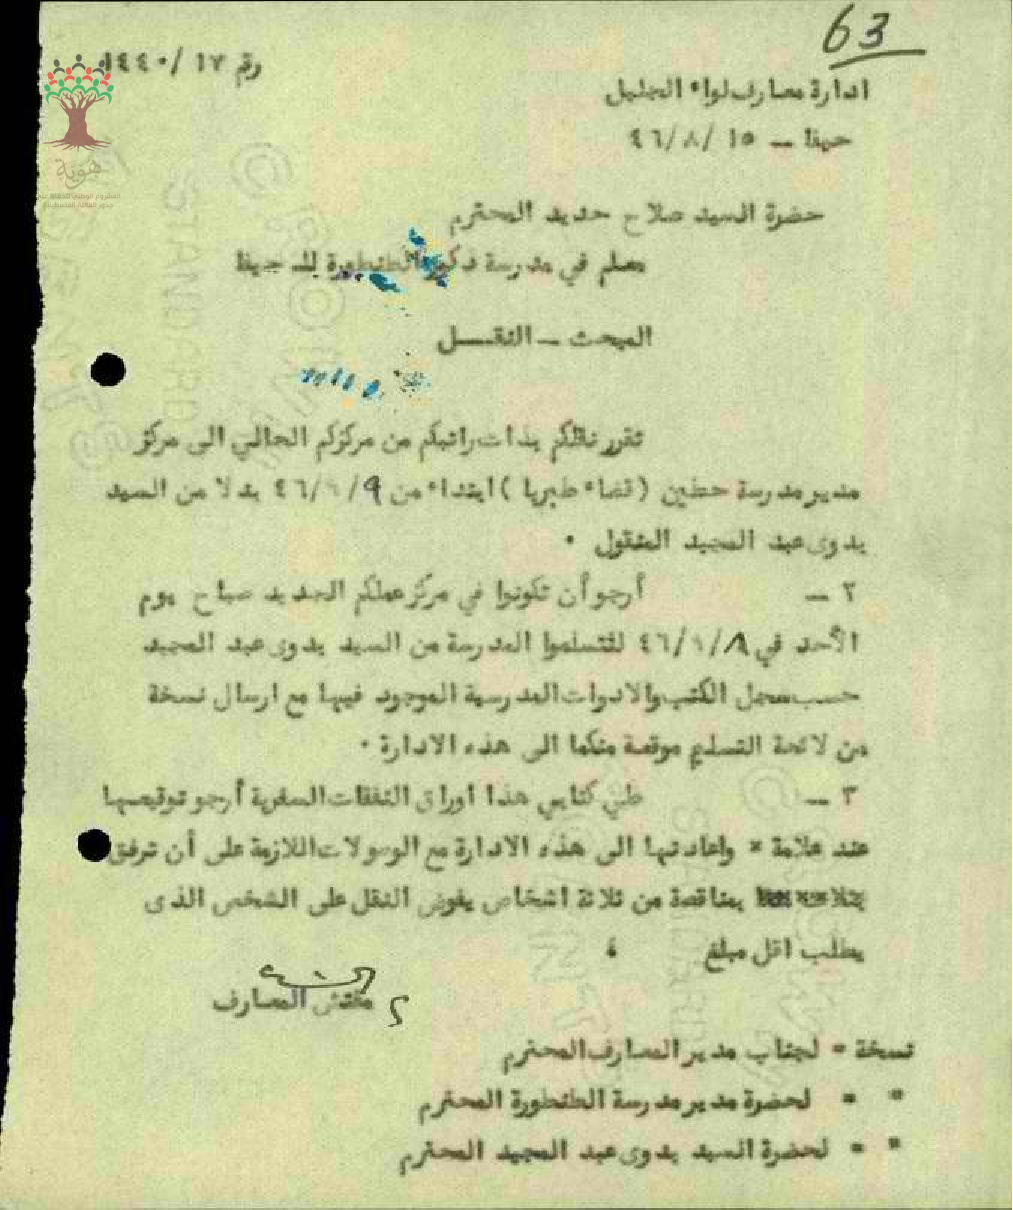 63
رقم ١٧ /١٤٤٠
ادارة معارف لواء الجليل
حيفا — ١٥ /٨ /٤٦
هوية
حضرة السيد صلاح حديد المحترم
معلم في مدرسة ذكور الطنطورة حيفا
المبحث — النقل
تقرر نقلكم بذات راتبكم من مركزكم الحالي الى مركز
مدير مدرسة حطين (قضاء طبريا) ابتداء من بدلا من السيد
بدوى عبد المجيد المنقول .
٢ — أرجو أن تكونوا في مركز عملكم الجديد صباح يوم
الأحد في لتتسلموا المدرسة من السيد بدوى عبد المجيد
حسب سجل الكتب والادوات المدرسية الموجود فيها مع ارسال نسخة
من لائحة التسليم موقعة منكما الى هذه الادارة .
٣ — طي كتابي هذا اوراق النفقات السفرية أرجو توقيعها
عند علامة × واعادتها الى هذه الادارة مع الوصولات اللازمة على أن ترفق
بمناقصة من ثلاثة اشخاص يفوض النقل على الشخص الذى
يطلب اقل مبلغ ،
مفتش المعارف
نسخة = لجناب مدير المعارف المحترم
" = لحضرة مدير مدرسة الطنطورة المحترم
" = لحضرة السيد بدوى عبد المجيد المحترم